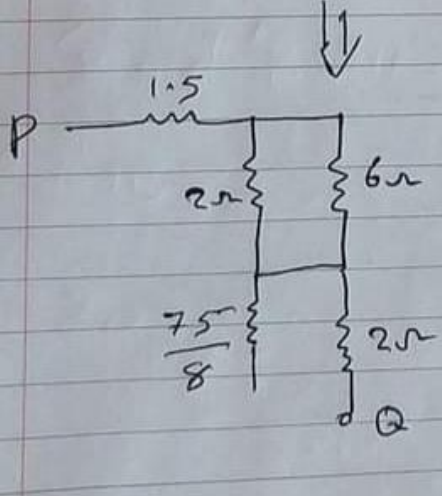 1
1.5
P
2Ω
6Ω
75
8
2Ω
Q